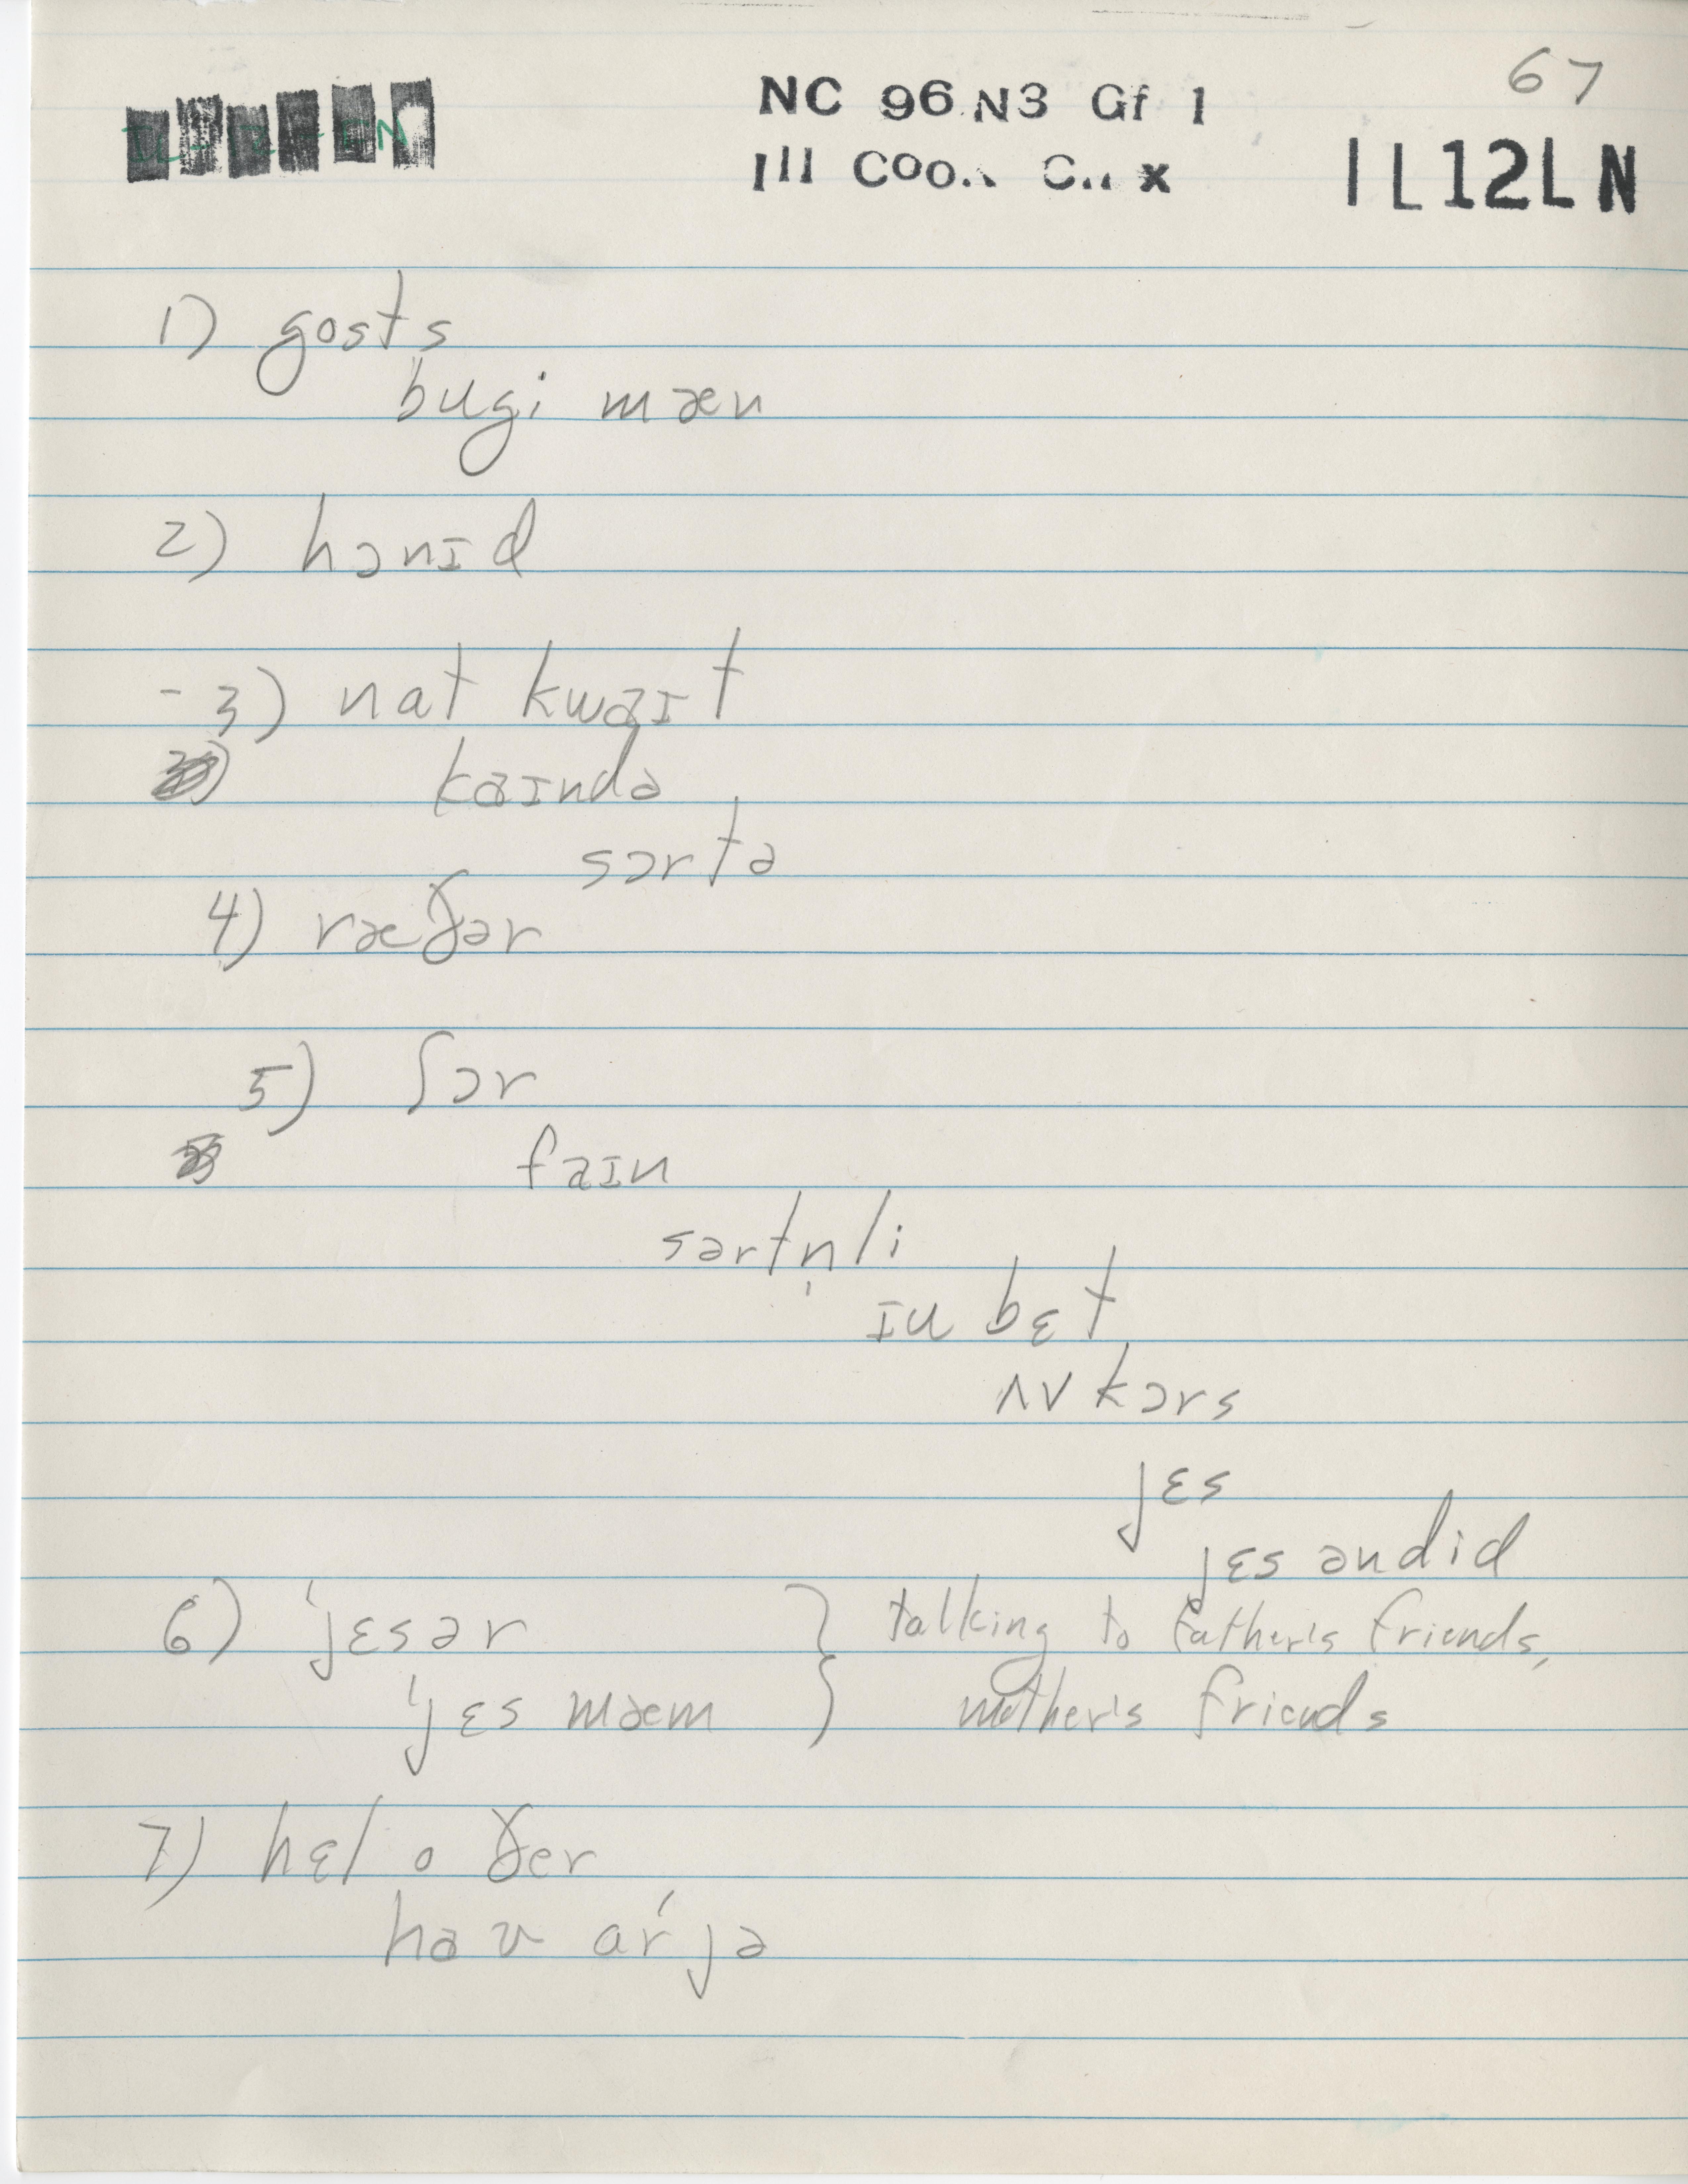 67
NC 96 N3 Gf 1
Ill
IL12LN
1) gosts
bugi mæn
2) hɔnɪd
-3) nat kwaɪt
kaɪndə
sɔrtə
4) ræðər
5) ʃɔr
faɪn
sərtn̩li
ɪu bɛt
ʌv kɔrs
jɛs
jɛs əndid
6) 'jɛsər } talking to father's friends,
'jɛs mæm } mother's friends
7) hɛlo ðer
haʊ ar'jə